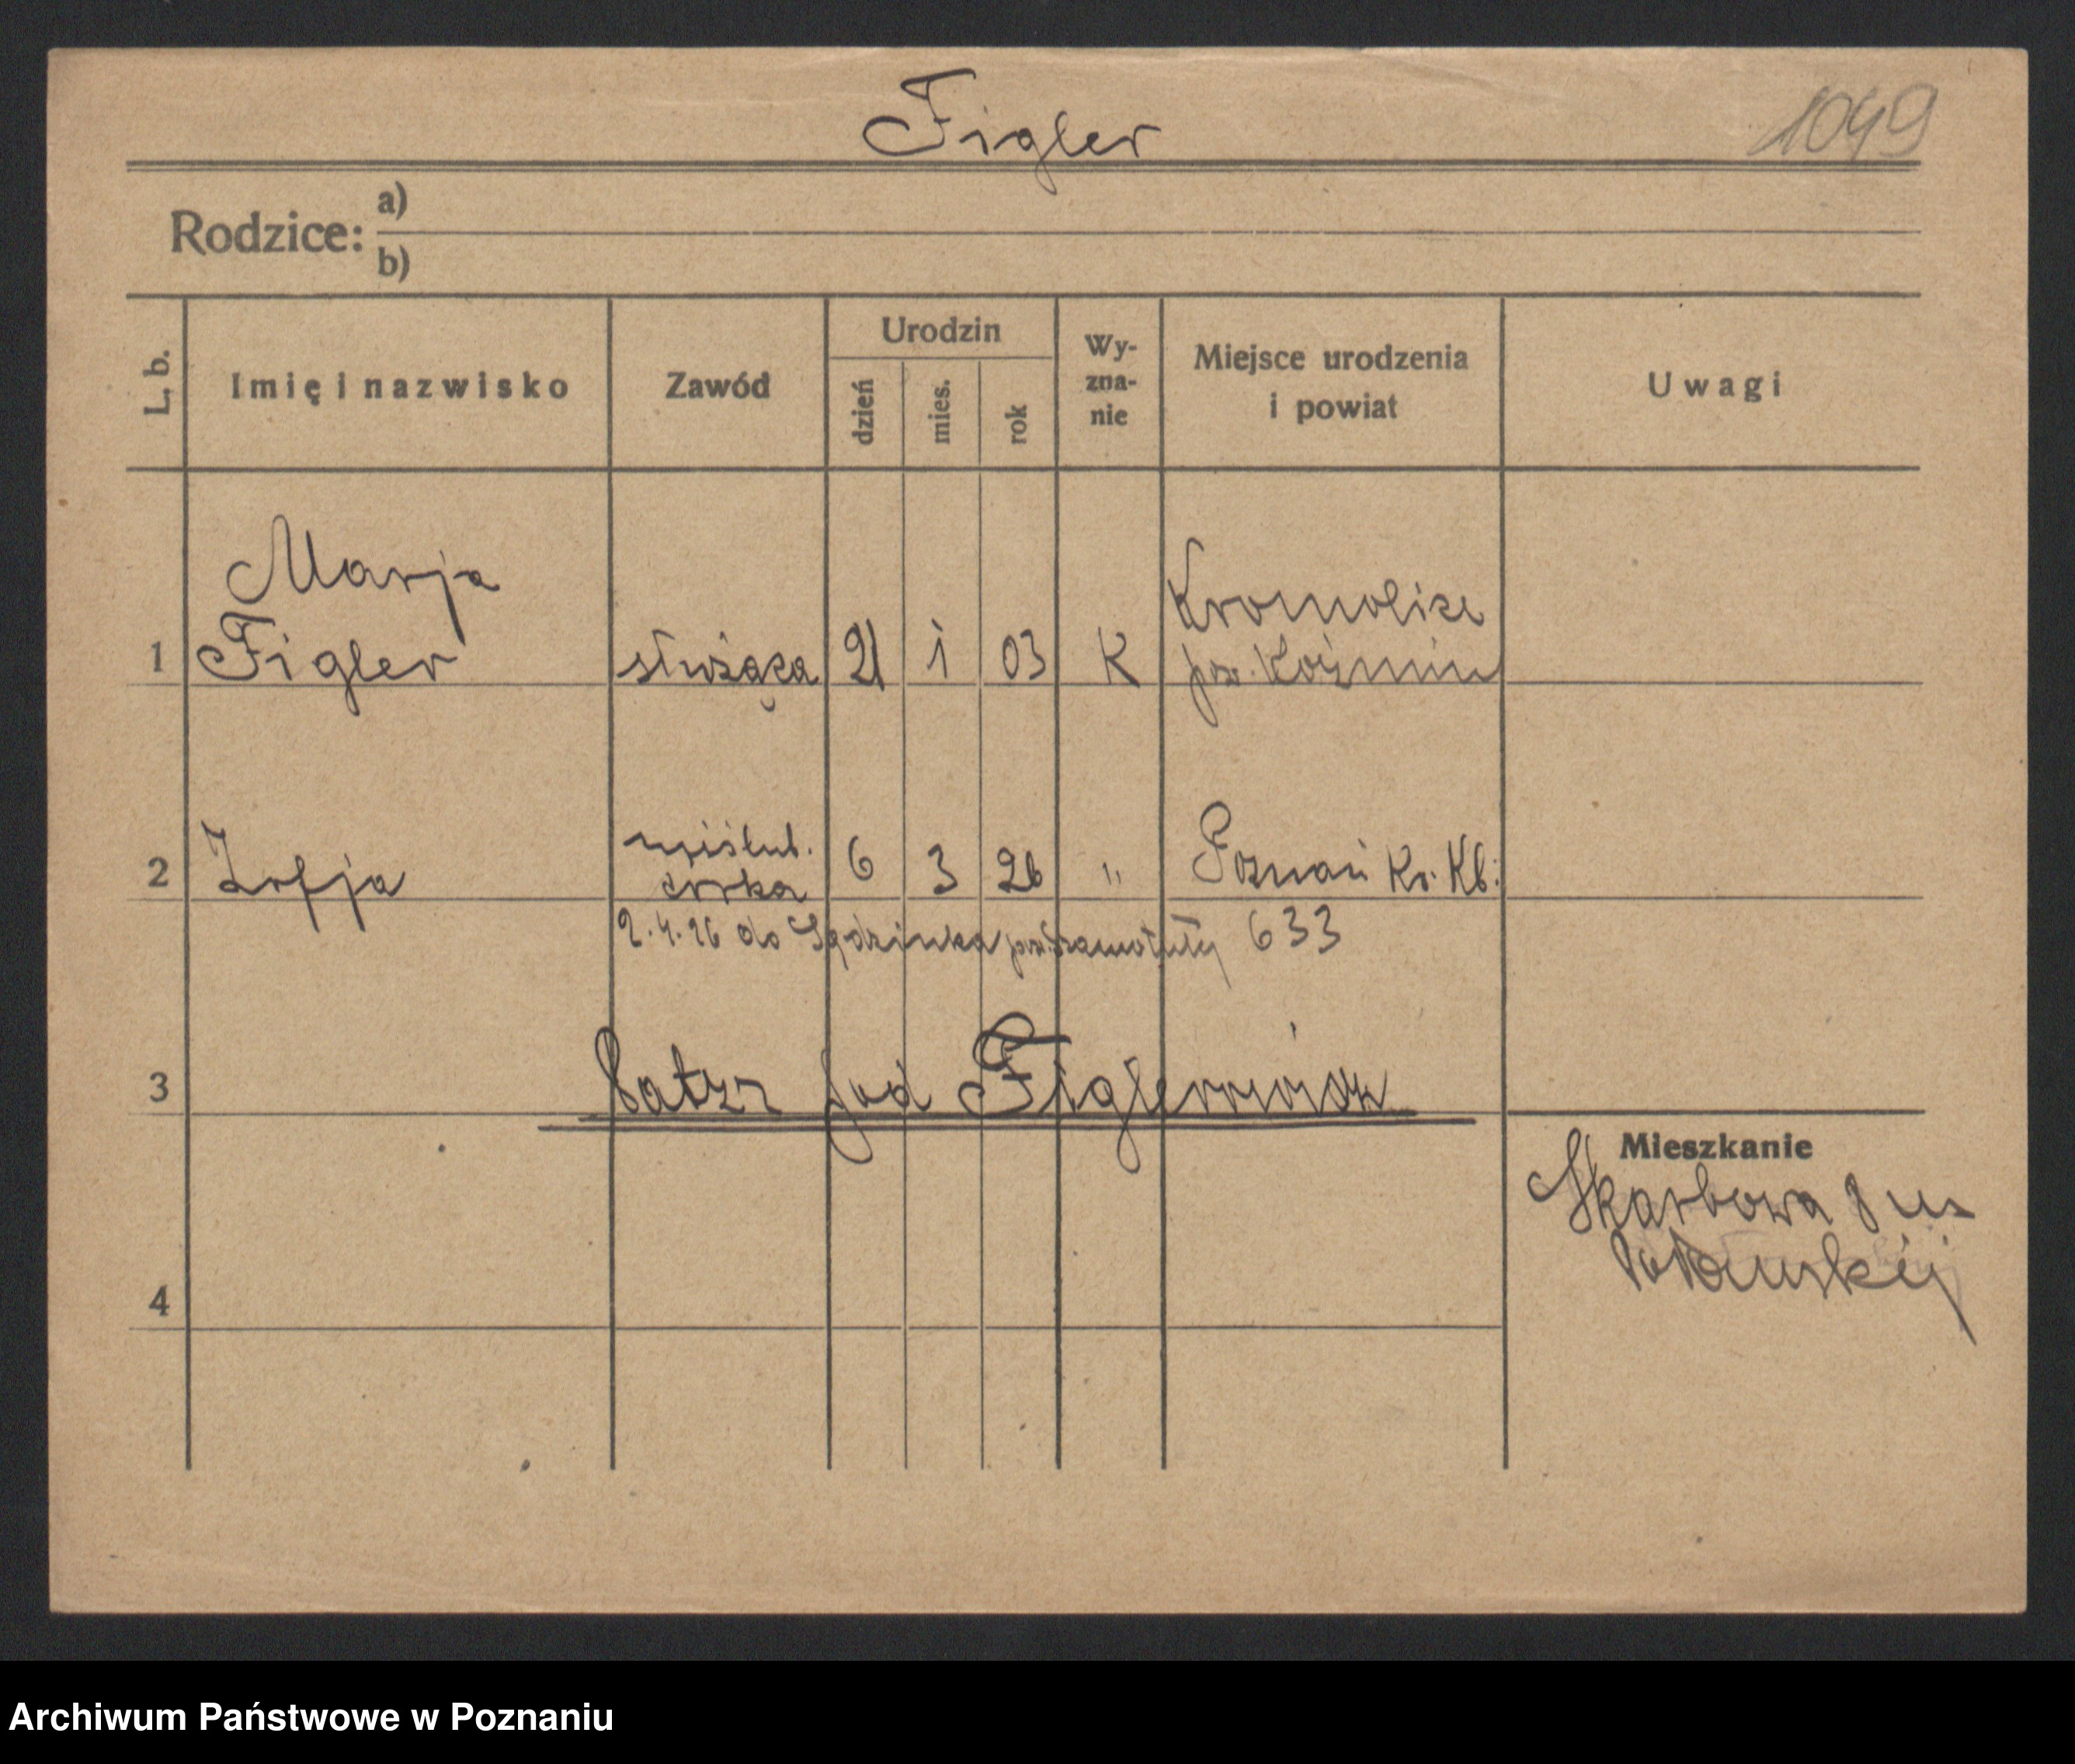 Figler
1049
Rodzice: a)
b)
L. b.
Imię i nazwisko
Zawód
Urodzin
dzień
mies.
rok
Wy-
zna-
nie
Miejsce urodzenia
i powiat
Uwagi
Marja
1 Figler służąca 21 1 03 K Kromolice
pow. Koźmin
2 Zofja nieślub. córka 6 3 26 " Poznań Kr. Kb:
2.4.26 do Sędzinka pow. Szamotuły 633
3 Patrz pod Figlerowicz
Mieszkanie
Skarbowa 8 u
4
Archiwum Państwowe w Poznaniu